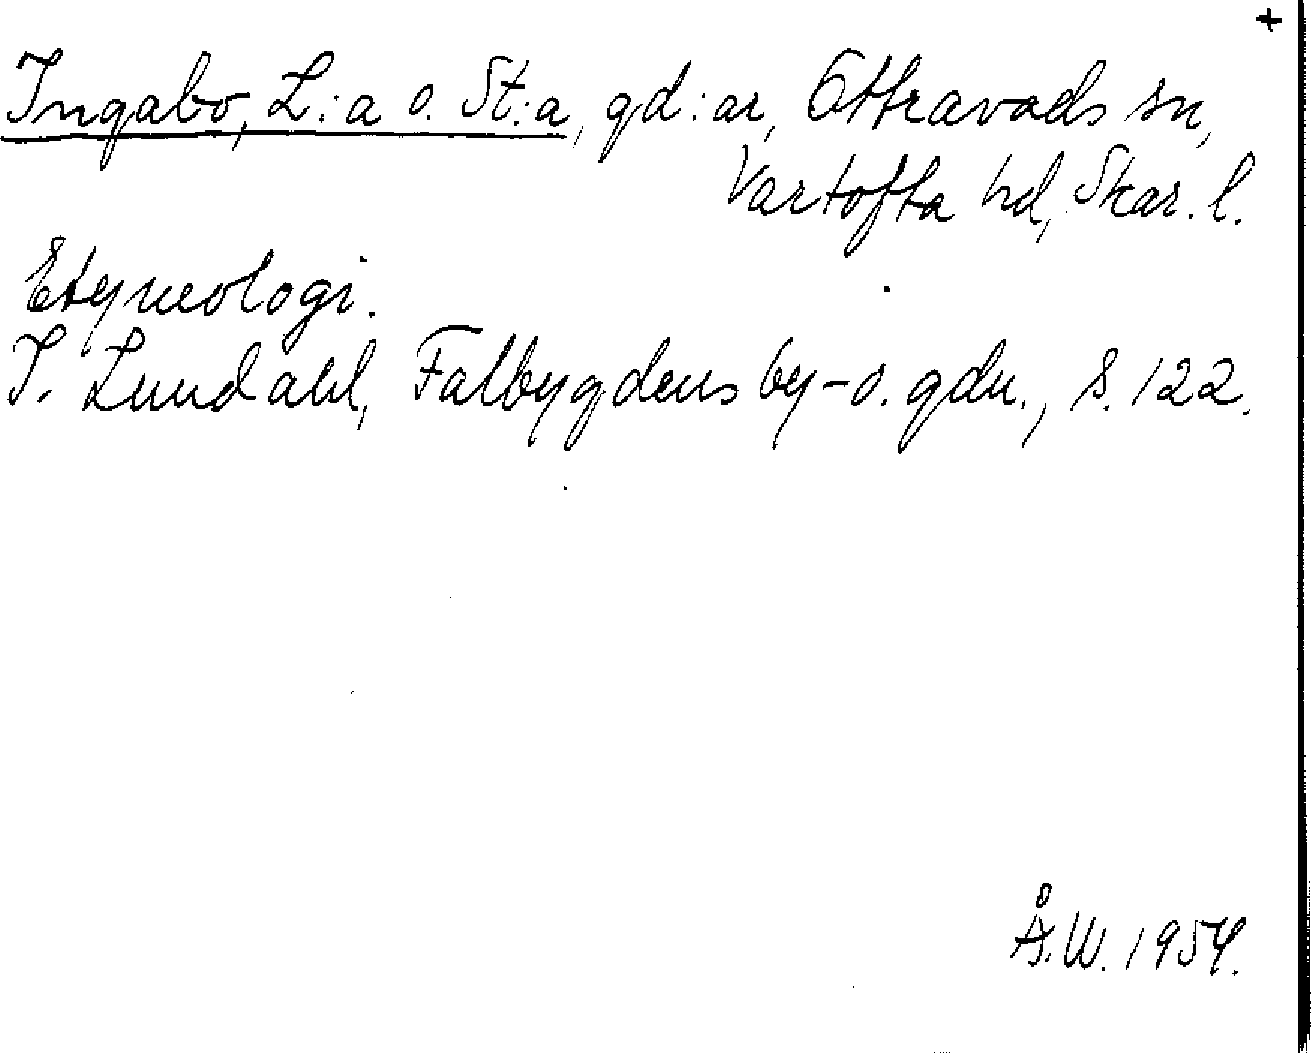 +
Ingabo, L:a o. St:a, gd:ar, Ottravads sn,
Vartofta hd, Skar. l.
Etymologi.
I. Lundahl, Falbygdens by- o. gdn., s. 122.
Å.W. 1954.